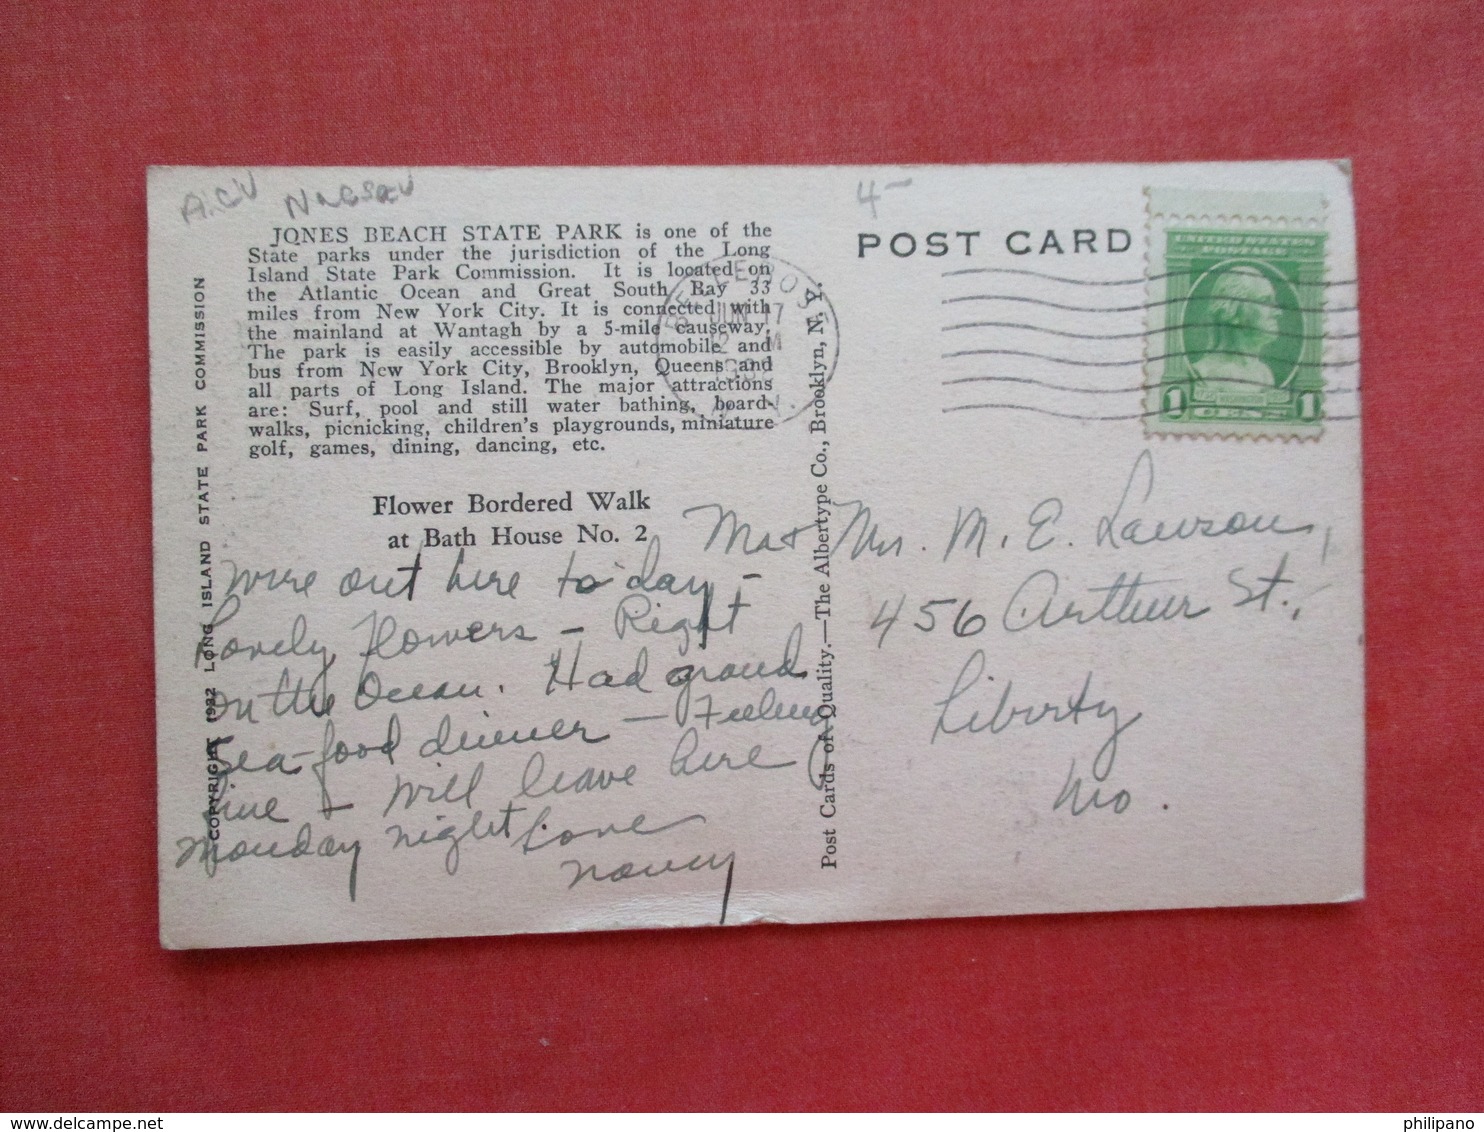 Nassau
4-
JONES BEACH STATE PARK is one of the
State parks under the jurisdiction of the Long
Island State Park Commission. It is located on
the Atlantic Ocean and Great South Bay 33
miles from New York City. It is connected with
the mainland at Wantagh by a 5-mile causeway.
The park is easily accessible by automobile and
bus from New York City, Brooklyn, Queens and
all parts of Long Island. The major attractions
are: Surf, pool and still water bathing, board-
walks, picnicking, children's playgrounds, miniature
golf, games, dining, dancing, etc.
Flower Bordered Walk
at Bath House No. 2
COPYRIGHT 1932 LONG ISLAND STATE PARK COMMISSION
Were out here to day -
Lovely Flowers - Right
on the Ocean. Had grand
Sea-food dinner - Feeling
fine - Will leave here
Monday night. Love
Nancy
Post Cards of Quality.—The Albertype Co., Brooklyn, N. Y.
POST CARD
BELLEROSE
JUN 17
2 M
N.Y.
UNITED STATES
POSTAGE
1 1
Mr + Mrs. M. E. Lawson,
456 Arthur St.,
Liberty
Mo.
philipano